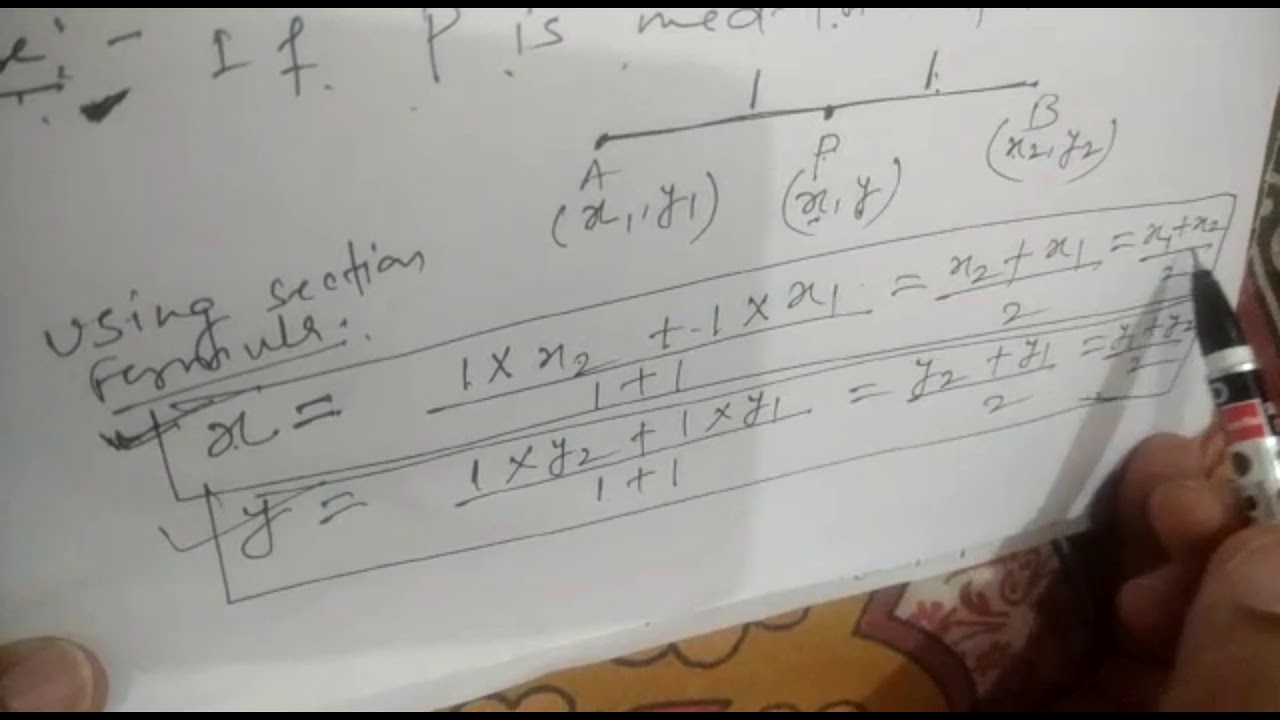 - If P is
1 1
A P B
(x1, y1) (x, y) (x2, y2)
Using section
formula:
x = 1 × x2 + 1 × x1 / 1 + 1 = x2 + x1 / 2 = x1 + x2 / 2
y = 1 × y2 + 1 × y1 / 1 + 1 = y2 + y1 / 2 = y1 + y2 / 2